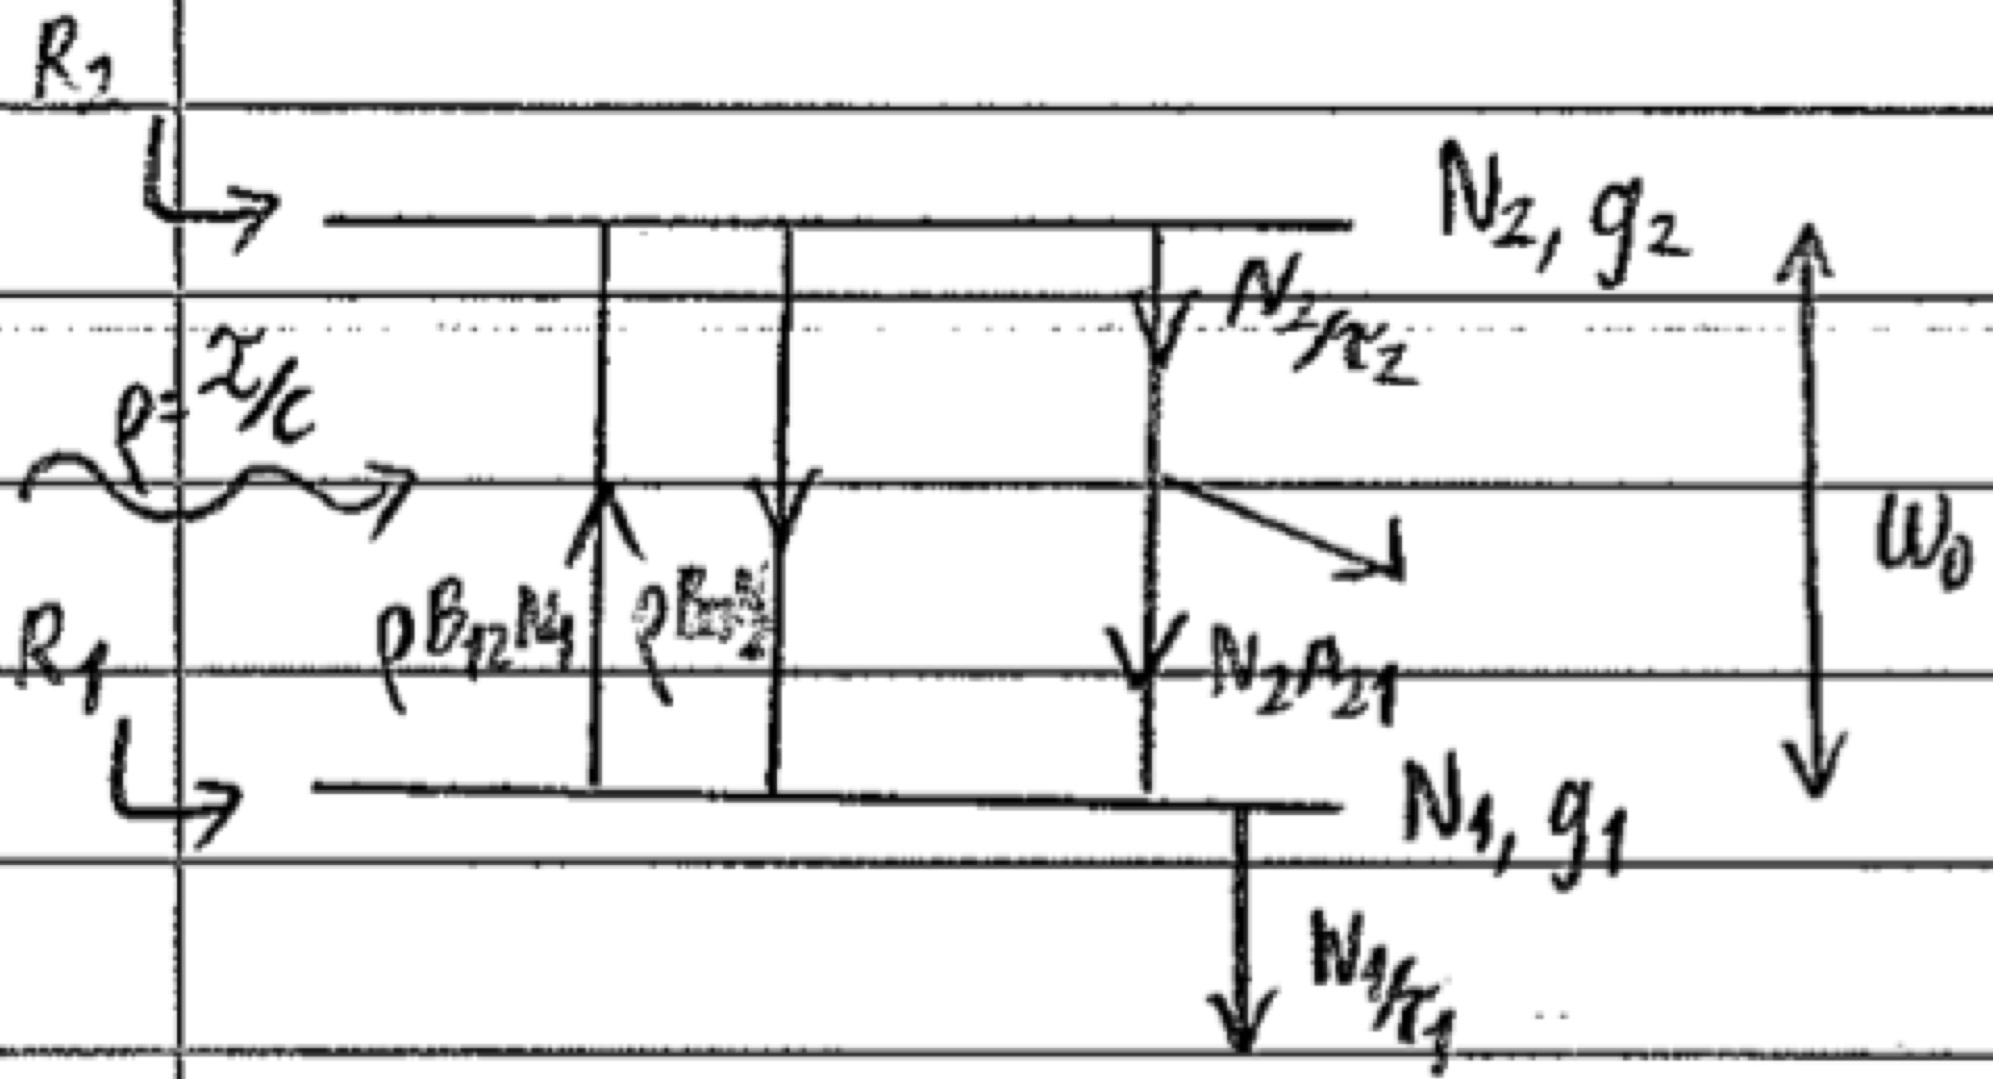 R₂
N₂, g₂
N₂/τ₂
ρ = I/c
ω₀
ρB₁₂N₁
R₁
N₂A₂₁
N₁, g₁
N₁/τ₁